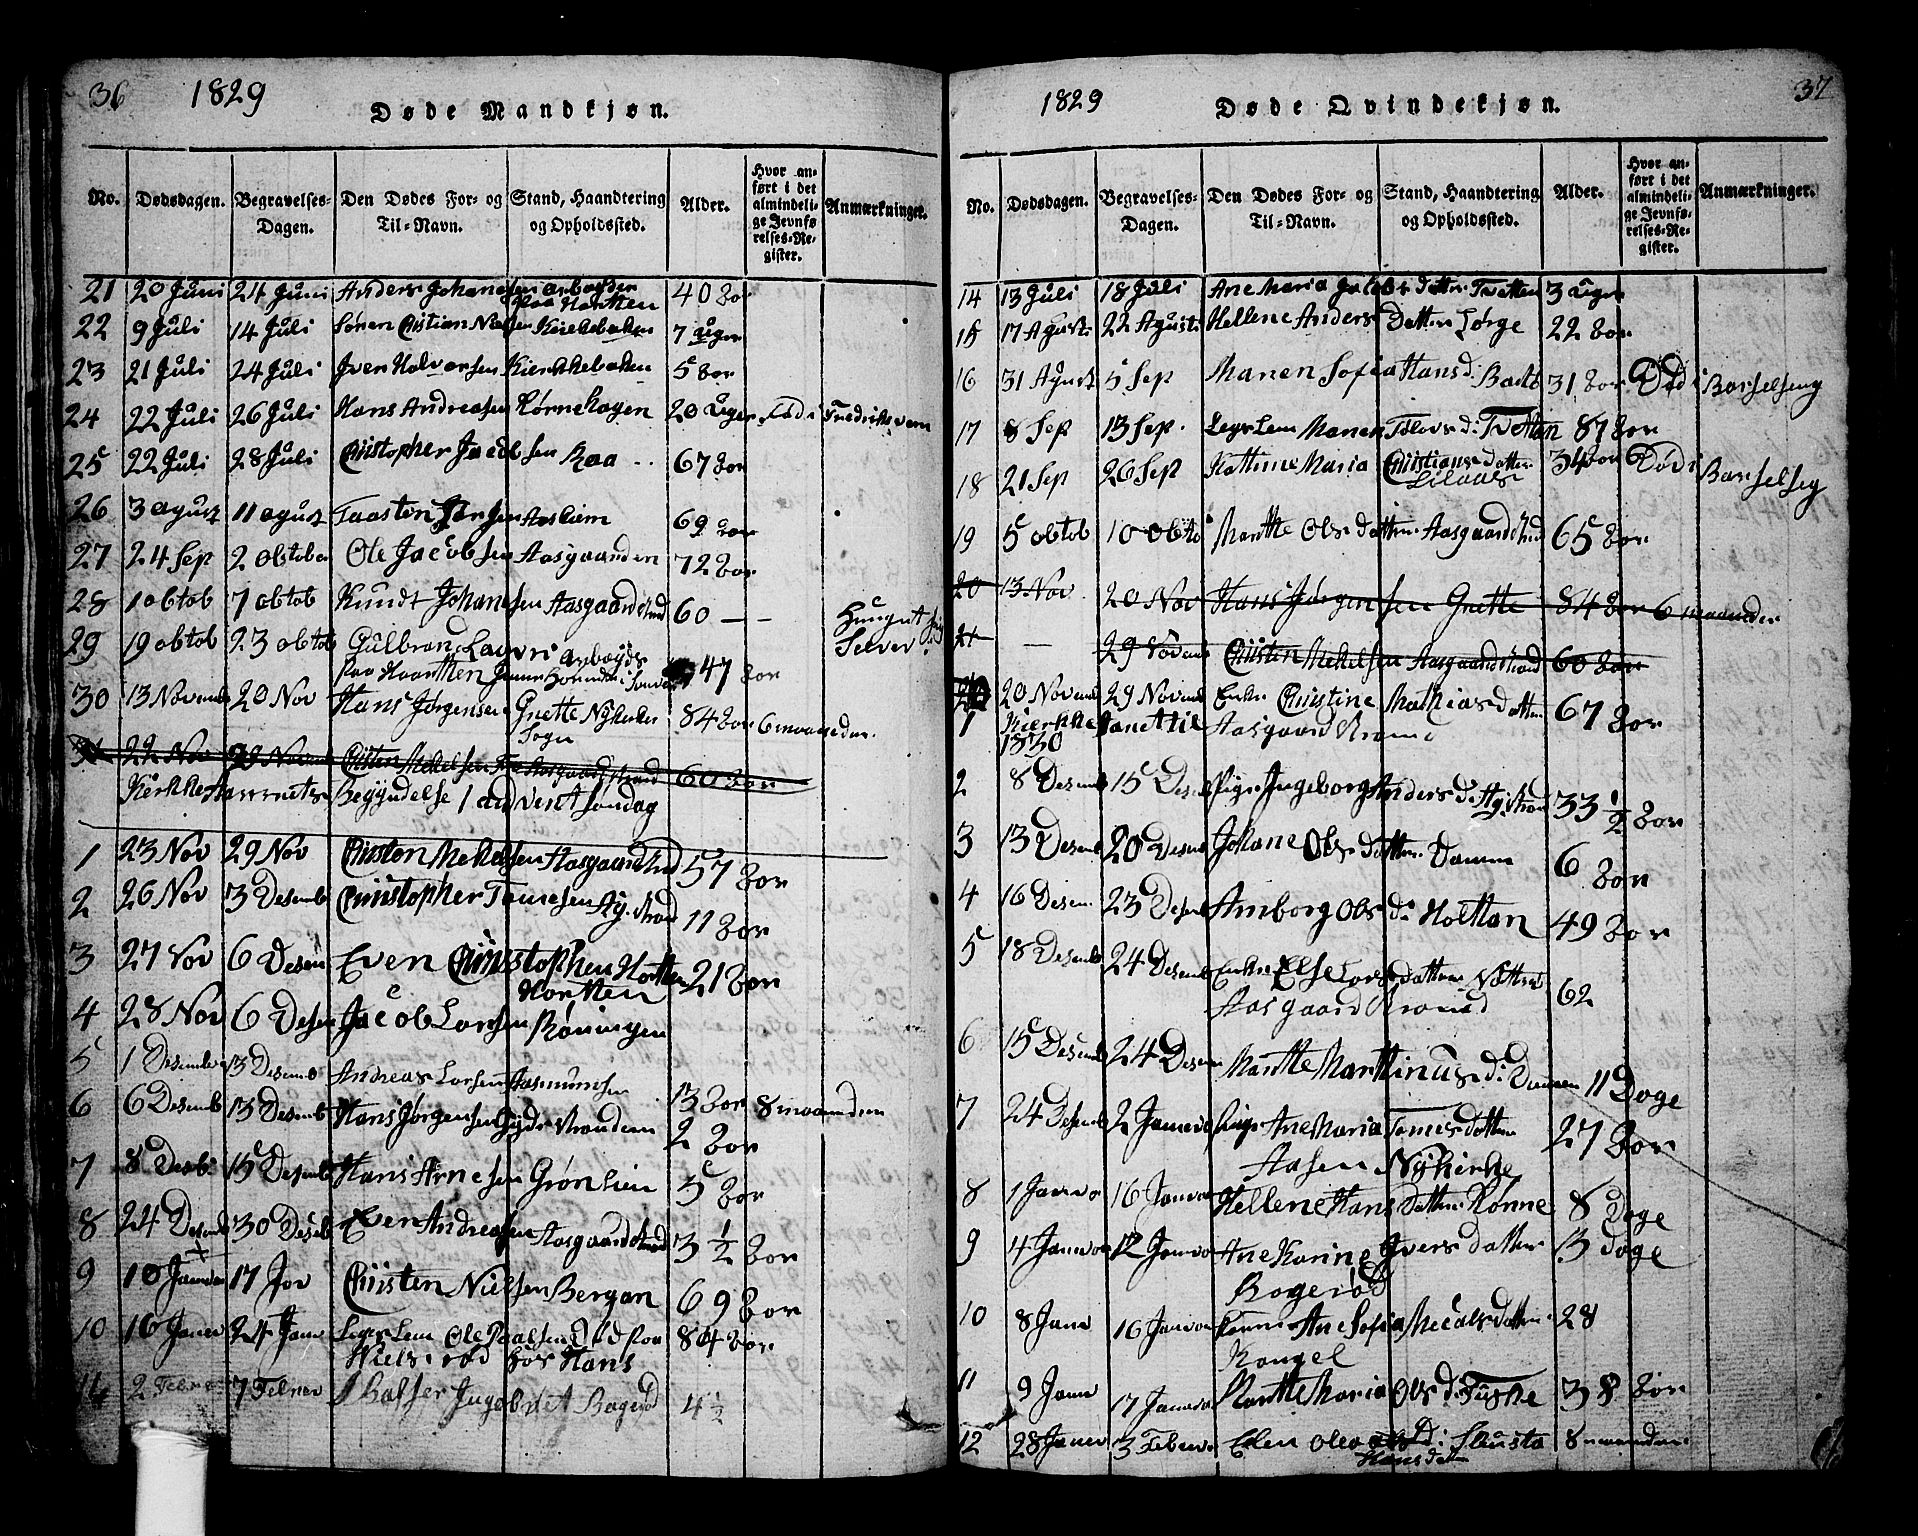 36 1829 Døde Mandkjøn.
No. Dødsdagen. Begravelses-Dagen. Den Dødes For- og Til-Navn. Stand, Haandtering og Opholdssted. Alder. Hvor anført i det almindelige Jevnførelses-Register. Anmærkninger.
21 20 Juni 24 Juni Anders Johansen arbeyder
Raa Hortten 40 Aar
22 9 Juli 14 Juli Søren Christian Nielsen Kierkebaken 7 uger
23 21 Juli 24 Juli Iver Halvorsen Kierkkebaken 5 Aar
24 22 Juli 26 Juli Hans Andreasen Rørnehagen 20 Uger Fød i Fredriksvern
25 22 Juli 28 Juli Christopher Jacobsen Raa 67 Aar
26 3 agust 11 agust Taasten Jørgsen Aasliem 69 Aar
27 24 Sep 2 obtober Ole Jacobsen Aasgaarden 72 Aar
28 1 obtob 7 obtob Kundt Johansen Aasgaardstrand 60 — —
29 19 obtob 23 obtob Gulbran Larsen arbeyds
Raa Haartten 47 Aar Hængnt Sig Selver
30 13 Novemb 20 Nov Hans Jørgensen Grette Nykirke
Sogn 84 Aar 6 maaneder
31 22 Nov 29 Novemb Cristen Mekelsen Aasgaardstrand 60 Aar
Kirkke Aarrets Begyndelse 1 advent sondag
1 23 Nov 29 Nov Christen Mekelsen Aasgaardstrand 57 Aar
2 26 Nov 3 Desemb Christopher Tomesen Ag. strand 11 Aar
3 27 Nov 6 Desem Even Christophen Hortten
Hortten 21 Aar
4 28 Nov 6 Desem Jacob Larsen Røningen
5 1 Desember 13 Desemb Andreas Larsen Aasmundsen 13 Aar 8 maaneden
6 6 Desemb 13 Desemb Hans Jørgensen Gydestranden 2 Aar
7 8 Desb 15 Desemb Hans Arnesen Grønlien 5 Aar
8 24 Desemb 30 Desemb Even Andreasen Aasgaardstrand 3 ½ Aar
9 10 Januar 17 Jav Christen Nielsen Bergan 69 Aar
10 16 Janu 24 Janu Legs Lem Ole Paalsen Død Paa
Nielsrød hos Hans 84 Aar
14 2 Febru 7 Februar Balser Ingebret Bagerød 4 ½
1829 Døde Qvindekjøn. 37
No. Dødsdagen. Begravelses-Dagen. Den Dødes For- og Til-Navn. Stand, Haandtering og Opholdssted. Alder. Hvor anført i det almindelige Jevnførelses-Register. Anmærkninger.
14 13 Juli 18 Juli Ane Maria Jacobs datter Tvetten 3 uger
15 17 Agusti 22 Agusti Hellene Anders Datter Sørge 22 Aar
16 31 Agust 5 Sep Maren Sofia Hans d: Bakke 31 Aar Død i Barselseng
17 8 Sep 13 Sep. Legs Lem Maren Tolovs d: Tvetten 87 Aar
18 21 Sep 26 Sep Kattrine Maria Christians datter 34 Aar Død i Barselseg
19 5 obtob 10 obto Marthe Ols datter Aasgaardstrand 65 Aar
20 13 Nov 20 Nov Hans Jørgensen Grette 84 Aar 6 maaneder
21 — 29 Novemb Christen Mekelsen Aasgaardstrand 60 Aar
20 Novemb 29 Novemb Enke Christine Mathias datter 67 Aar
1 Kierkke Aaret til Aasgaard strand
1830
2 8 Desemb 15 Desemb Pige Ingeborg Anders d: Ag: strand 33 ½ Aar
3 13 Desemb 20 Desemb Johane Ols datter Damen 6 Aar
4 16 Desem 23 Desemb Amborg Ols d: Holttan 49 Aar
5 18 Desemb 24 Desemb Enke Else Lars datter
Aasgaard strand 62
6 15 Desemb 24 Desem Marthe Marthinus d: Damen 11 Dage
7 24 Desemb 2 Januar Pige Ane Maria Tomes datter
Aasen Nykirke 27 Aar
8 1 Januar 16 Januar Hellene Hans datter Rønne 8 Dage
9 4 Januar 12 Januar Ane Karine Ivers datter
Bagerød 13 dage
10 8 Janu 16 Januar Kone Ane Sofia Mecals datter
Kangel 28
11 9 Janu 17 Januar Marthe Maria Ols d: Fuske 38 Aar
12 28 Januar 3 Februar Elen Olea d: Slusta
Hans datter 8 maander